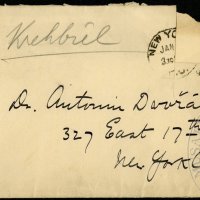 Krehbiel
NEW YO
JAN
Dr. Antonin Dvořá
327 East 17th
New York